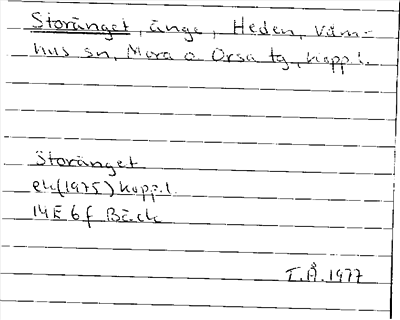 Storänget, änge, Heden, Våm-
hus sn, Mora o Orsa tg, Kopp.l.
Storänget
ek (1975) Kopp.l.
14E 6f Bäck
T.Å. 1977